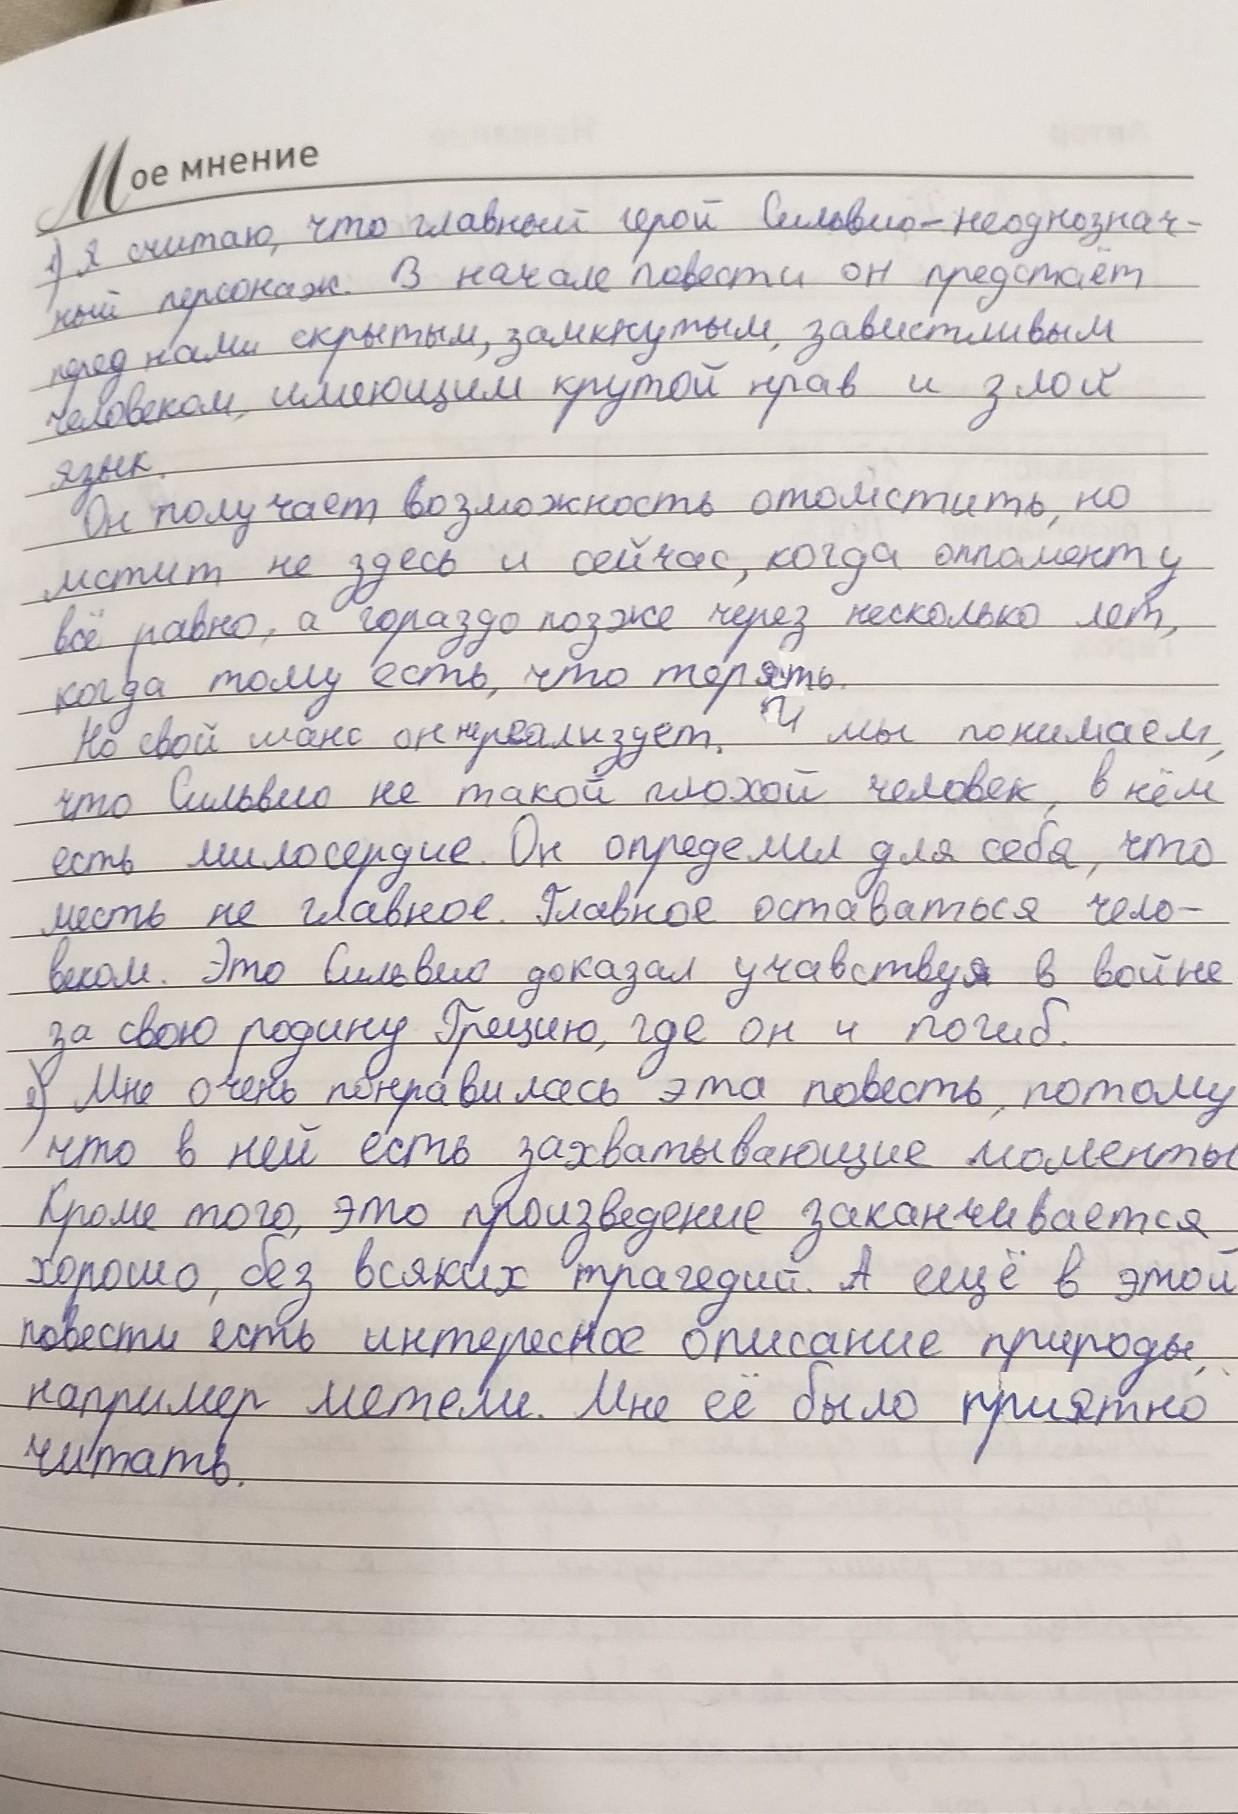 Мое мнение
1) Я считаю, что главный герой Сильвио - неоднознач-
ный персонаж. В начале повести он предстаёт
перед нами скрытым, замкнутым, завистливым
человеком, имеющим крутой нрав и злой
язык.
Он получает возможность отомстить, но
мстит не здесь и сейчас, когда оппоненту
всё равно, а гораздо позже через несколько лет,
когда тому есть, что терять.
Но свой шанс он не реализует. И мы понимаем,
что Сильвио не такой плохой человек, в нём
есть милосердие. Он определил для себя, что
месть не главное. Главное оставаться чело-
веком. Это Сильвио доказал учавствуя в войне
за свою родину Грецию, где он и погиб.
2) Мне очень понравилась эта повесть, потому
что в ней есть захватывающие моменты
Кроме того, это произведение заканчивается
хорошо, без всяких трагедий. А ещё в этой
повести есть интересное описание природы,
например метели. Мне её было приятно
читать.